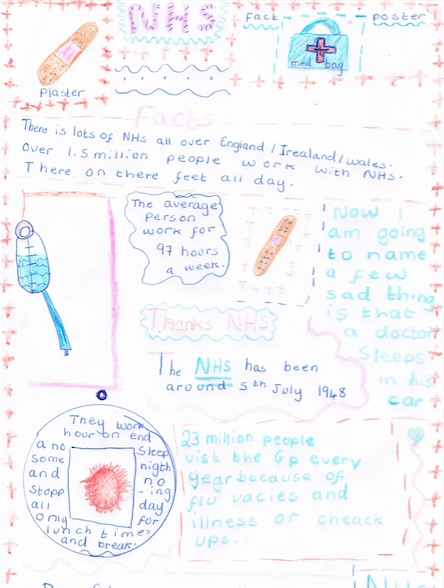 NHS
fact poster
plaster
med bag
Facts
There is lots of NHS all over England / Irealand / wales.
Over 1.5 million people work with NHS.
There on there feet all day.
The average
person
work for
97 hours
a week.
Now I
am going
to name
a few
sad thing
is that
a doctor
sleeps
in his
car
Thanks NHS
The NHS has been
around 5th July 1948
They work
hour on end
a no sleep
some nigth
and no
stopp -ing
all day
only for
lunch time
and break.
23 million people
vist the Gp every
year because of
flu vacies and
illness or cheack
ups.
NHS